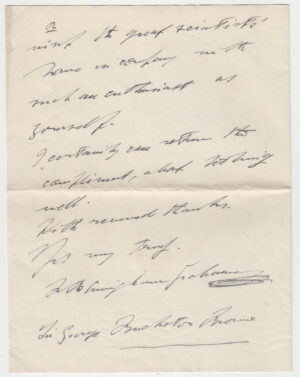 2
visit the great scientists'
home in company with
such an enthusiast as
yourself.
I certainly can return the
compliment, about
well.
With renewed thanks.
Yrs very truly
R B Cunninghame Graham
Sir George Buckston Browne